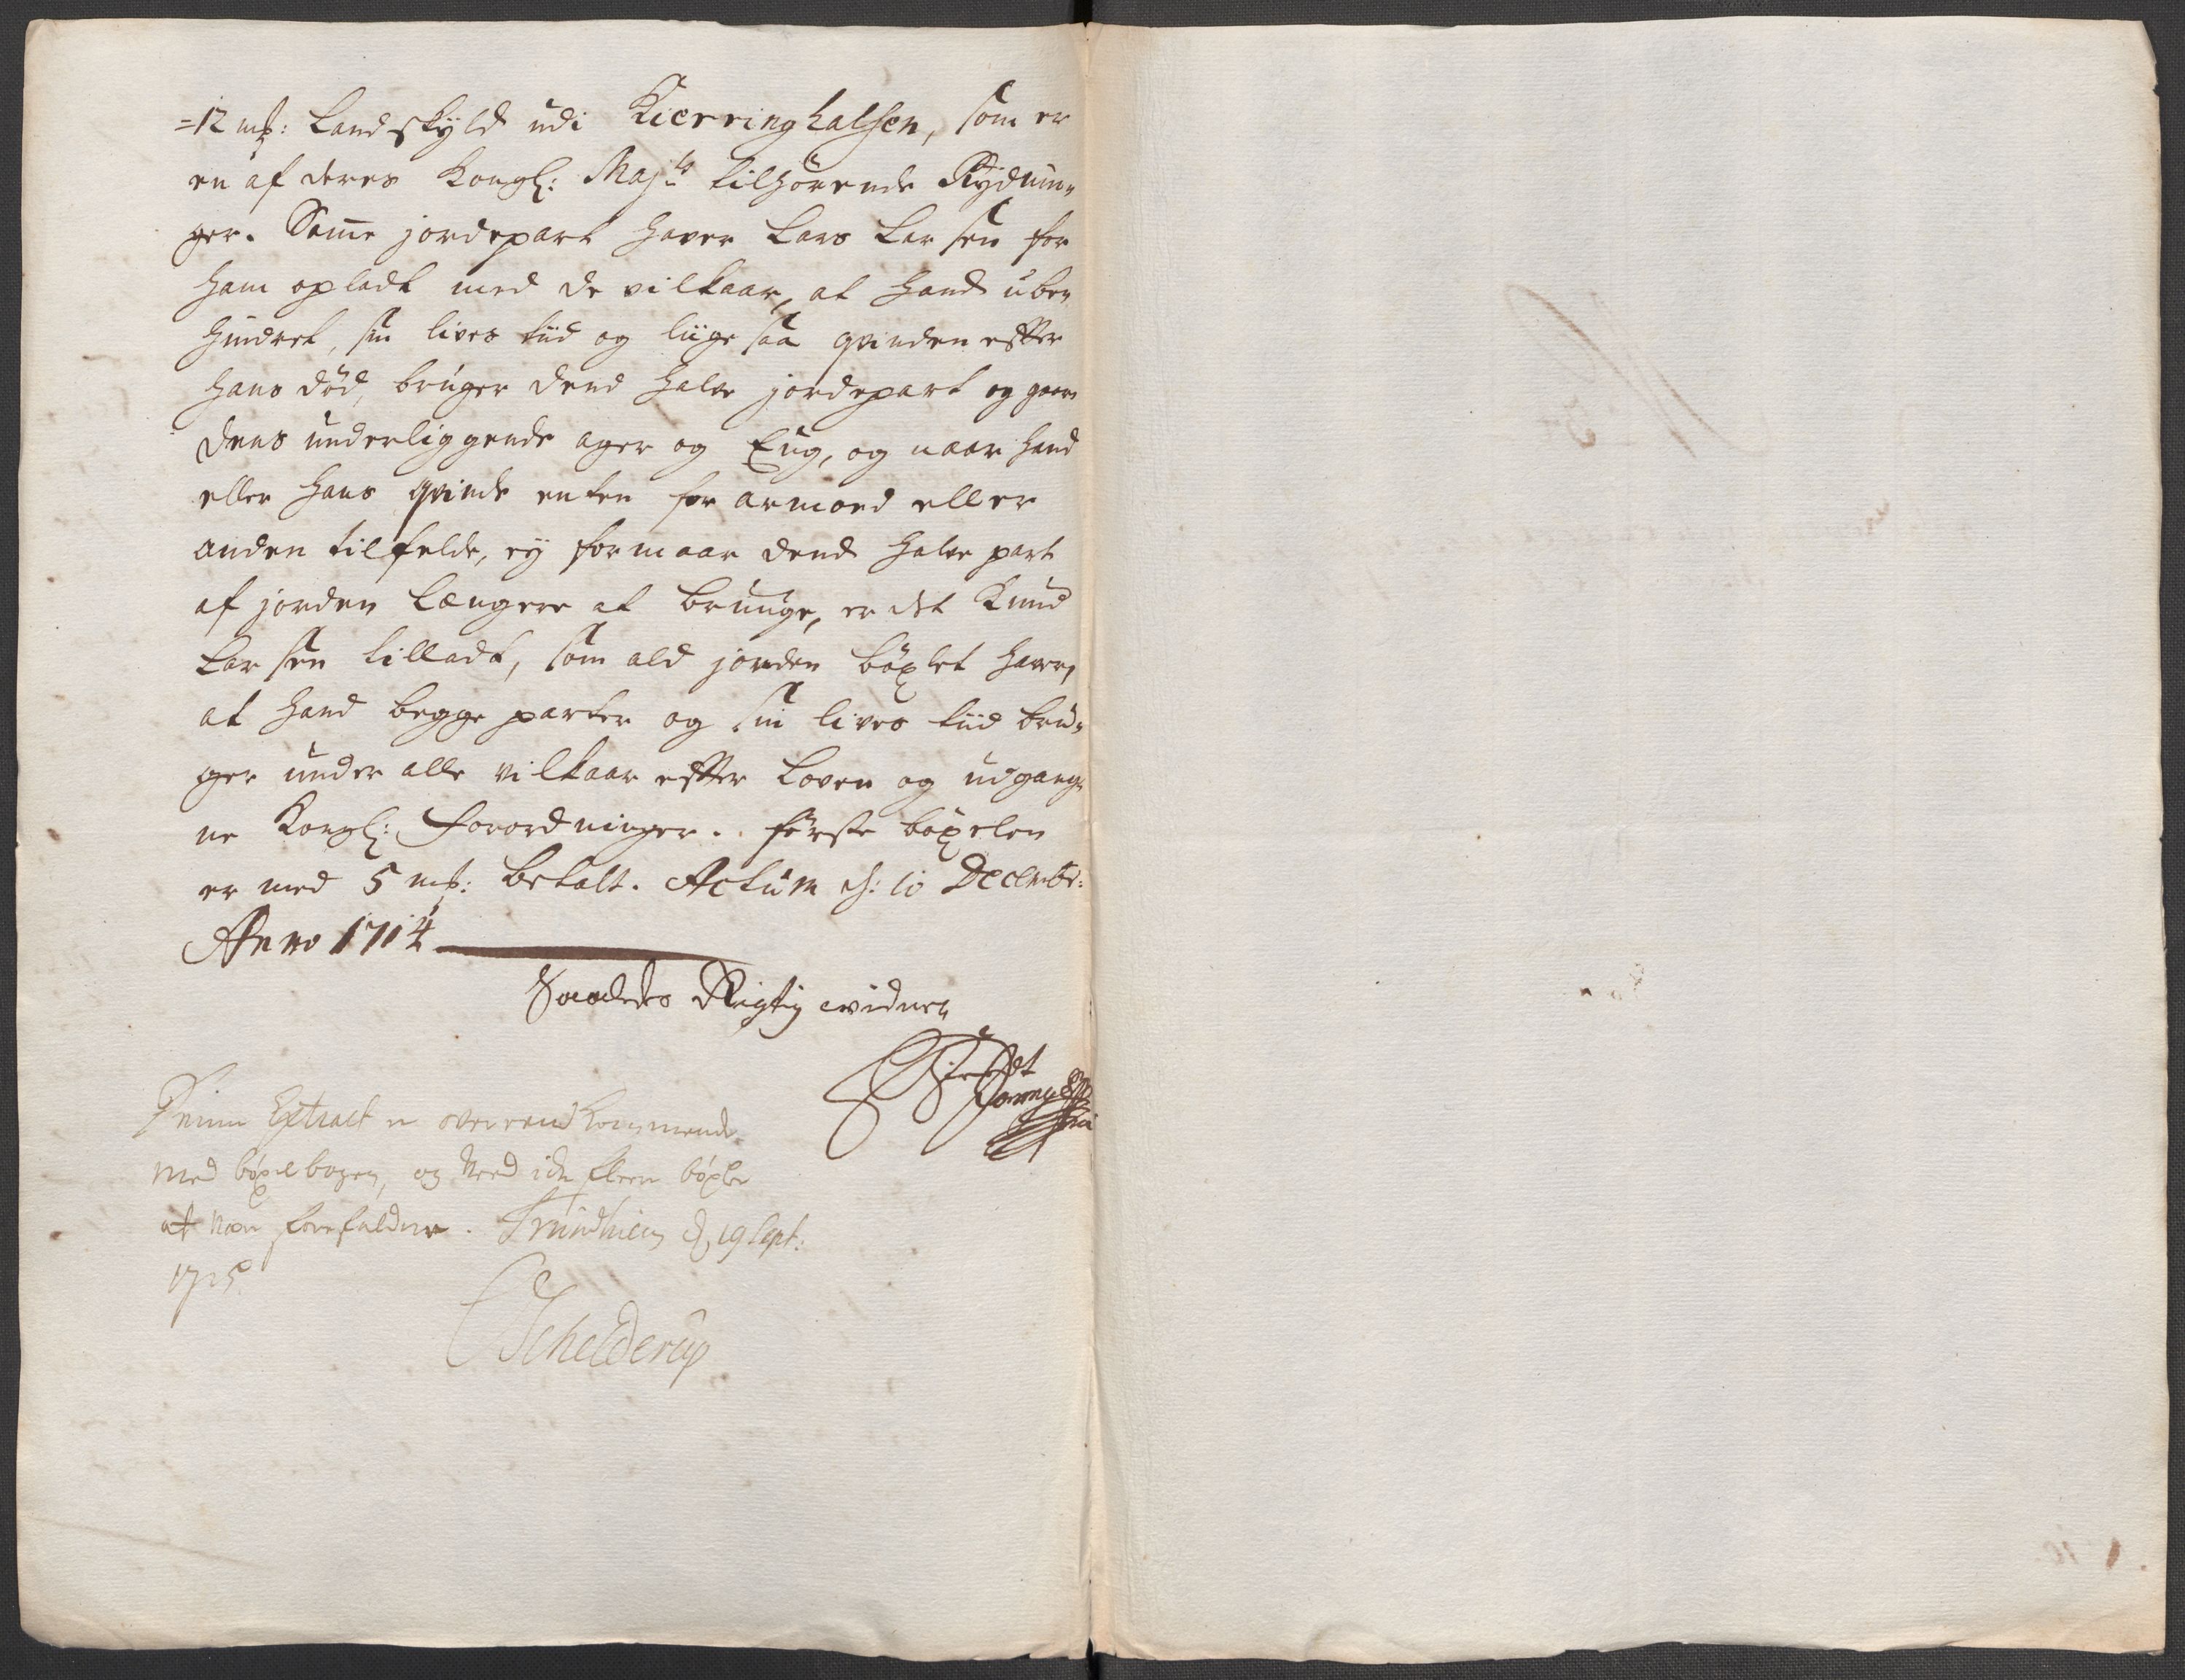 =12 mk: Landskyld udi Kierringhalsen, som er
en af deres Kongl: Maj:ts tilhörende Rydnin,,
ger. Same jordepart haver Lars Larsen for
ham opladt med de vilkaar, at hand ube,,
hindret, sin lives tiid og liige saa qvinden effter
hans död, bruger dend halve jordepart og gaar,,
dens underliggende ager og Eng, og naar hand
eller hans qvinde enten for armoed eller
anden tilfelde, ey formaar dend halve part
af jorden længere at bruuge, er det Knud
Larsen tilladt, som ald jorden böxlet haver,
at hand begge parter og sin lives tiid bru,,
ger under alle vilkaar effter Loven og udgang,,
ne Kongl: Forordninger. förste böxelen
er med 5 mk: betalt. Actum d: 10 Decembr:
Anno 1714
Saaledes Rigtig widner
Denne Extract er offvereenskommende
med böxelbogen, og veed icke fleere böxler
at være forefaldne. Trundhiem d, 19 Sept:
1715
Schelderup